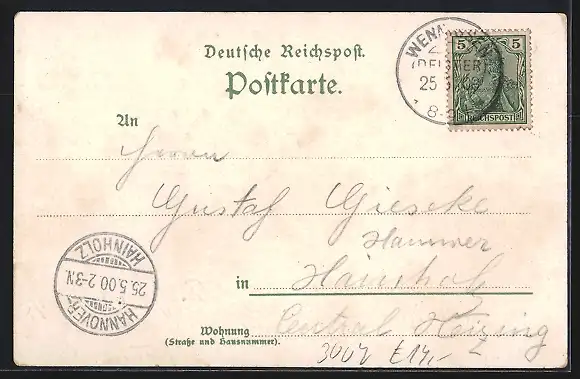 Deutsche Reichspost.
Postkarte.
5 5
REICHSPOST
WENN
(DEISTER)
25
8-9
An
Herrn
Gustav Gieseke
Hannover
in Hainholz
Central Heizung
Wohnung
(Straße und Hausnummer.)
HAINHOLZ
25.5.00 2-3N.
HANNOVER
3004 £14,-